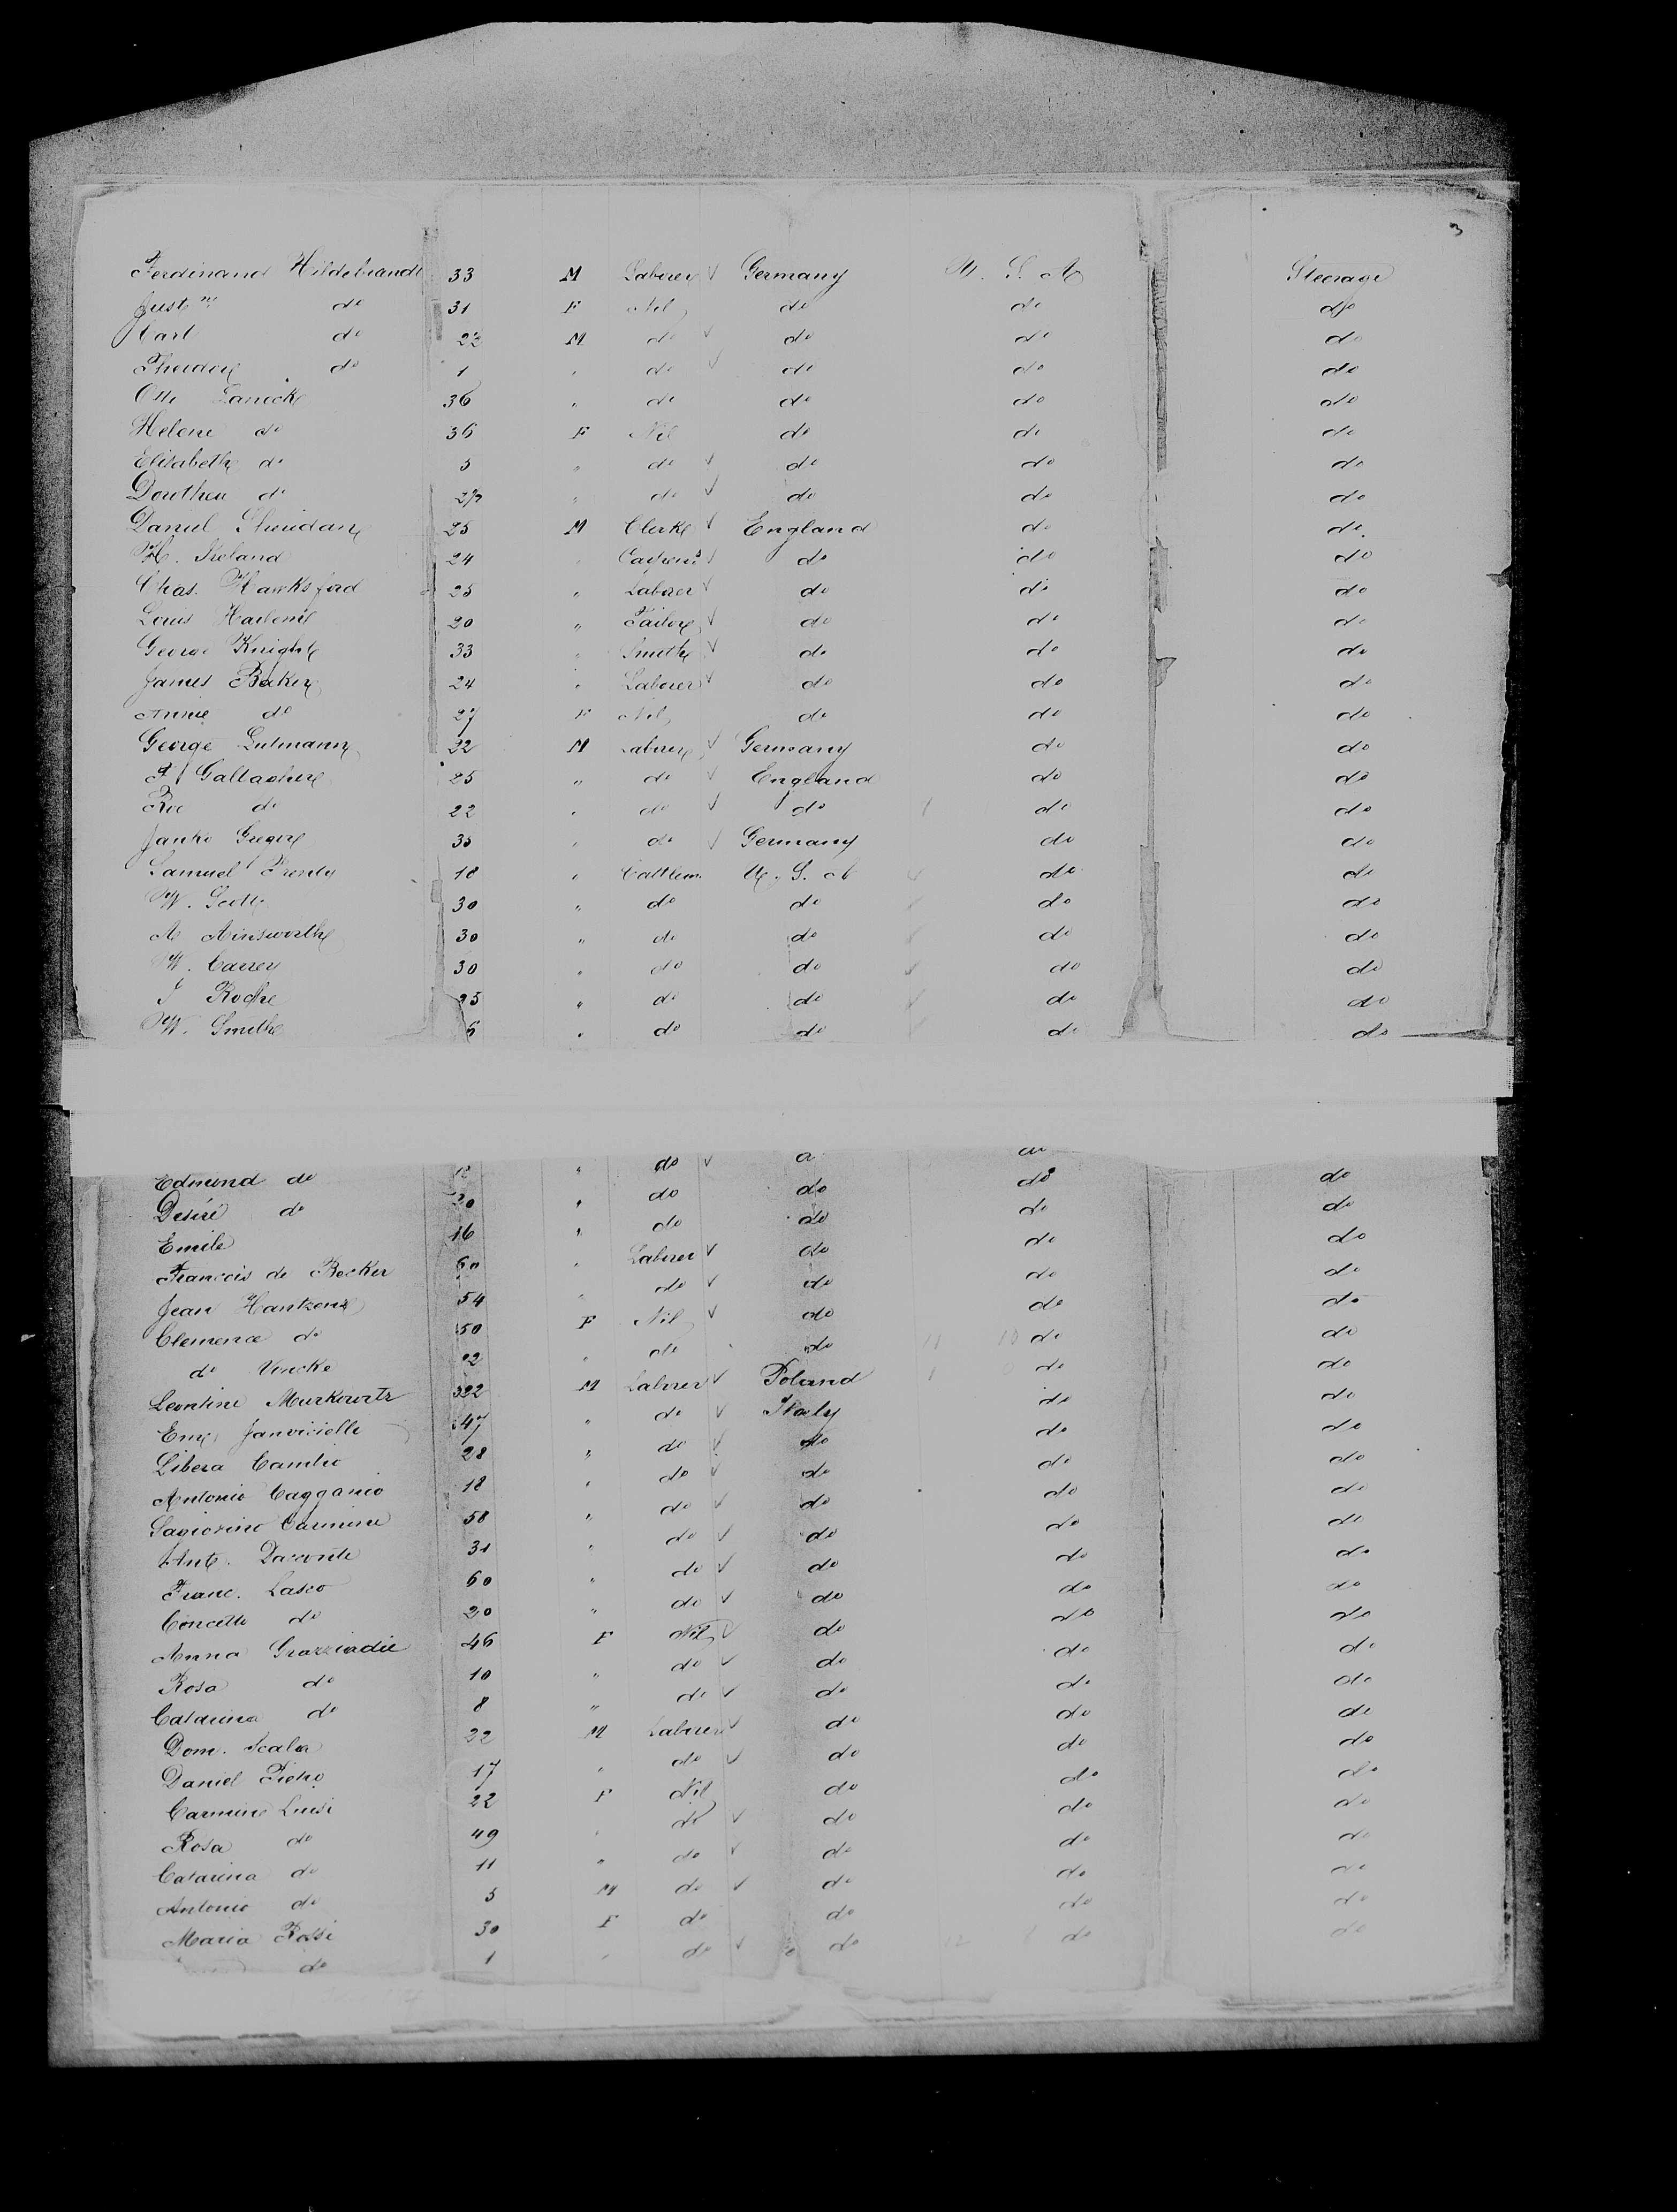 3
Ferdinand Hildebrandt 33 M Laborer Germany U. S. A Steerage
Just do 31 F Nil do do do
Carl do 22 M do do do do
do 1 " do do do do
Otto 36 " do do do do
Helene do 36 F Nil do do do
Elisabeth do 5 " do do do do
Dorothea do " do do do do
Daniel Sheridan 25 M Clerk England do do
H. Ireland 24 " do do do
Chas. Hawksford 25 " Laborer do do do
Louis 20 " Tailor do do do
George Knight 33 " Smith do do do
James Baker 24 " Laborer do do do
Annie do 27 F Nil do do do
George Lutmann 22 M Laborer Germany do do
F Gallagher 25 " do England do do
do 22 " do do do do
Janko Gregor 35 " do Germany do do
Samuel 18 " Cattlem. U. S. A do do
W. Scott 30 " do do do do
A Ainsworth 30 " do do do do
W. Carrey 30 " do do do do
J Roche 25 " do do do do
W. Smith 6 " do do do do
Edmond do 18 " do do
Desiré do 20 " do do do do
Emile 16 " do do do do
Francois de Becker 60 " Laborer do do do
Jean Hantzenz 54 " do do do do
Clemence do 50 F Nil do do do
do Vincke 22 " do do do do
Leontine Murkowitz 322 M Laborer Poland do do
Janvicielle 47 " do Italy do do
Libera Cambio 28 " do do do do
Antonio Cagganio 18 " do do do do
Saviorino Carmine 58 " do do do do
Ant. Daconte 31 " do do do do
Franc. Lasco 60 " do do do do
Concetto do 20 " do do do do
Anna Grazziadie 46 F Nil do do do
Rosa do 10 " do do do do
Catarina do 8 " do do do do
Dom. Scala 22 M Laborer do do do
Daniel Pietro 17 " do do do do
Carmine Luisi 22 F Nil do do do
Rosa do 49 " do do do do
Catarina do 11 " do do do do
Antonio do 5 M do do do do
Maria Rossi 30 F do do do do
do 1 " do do do do